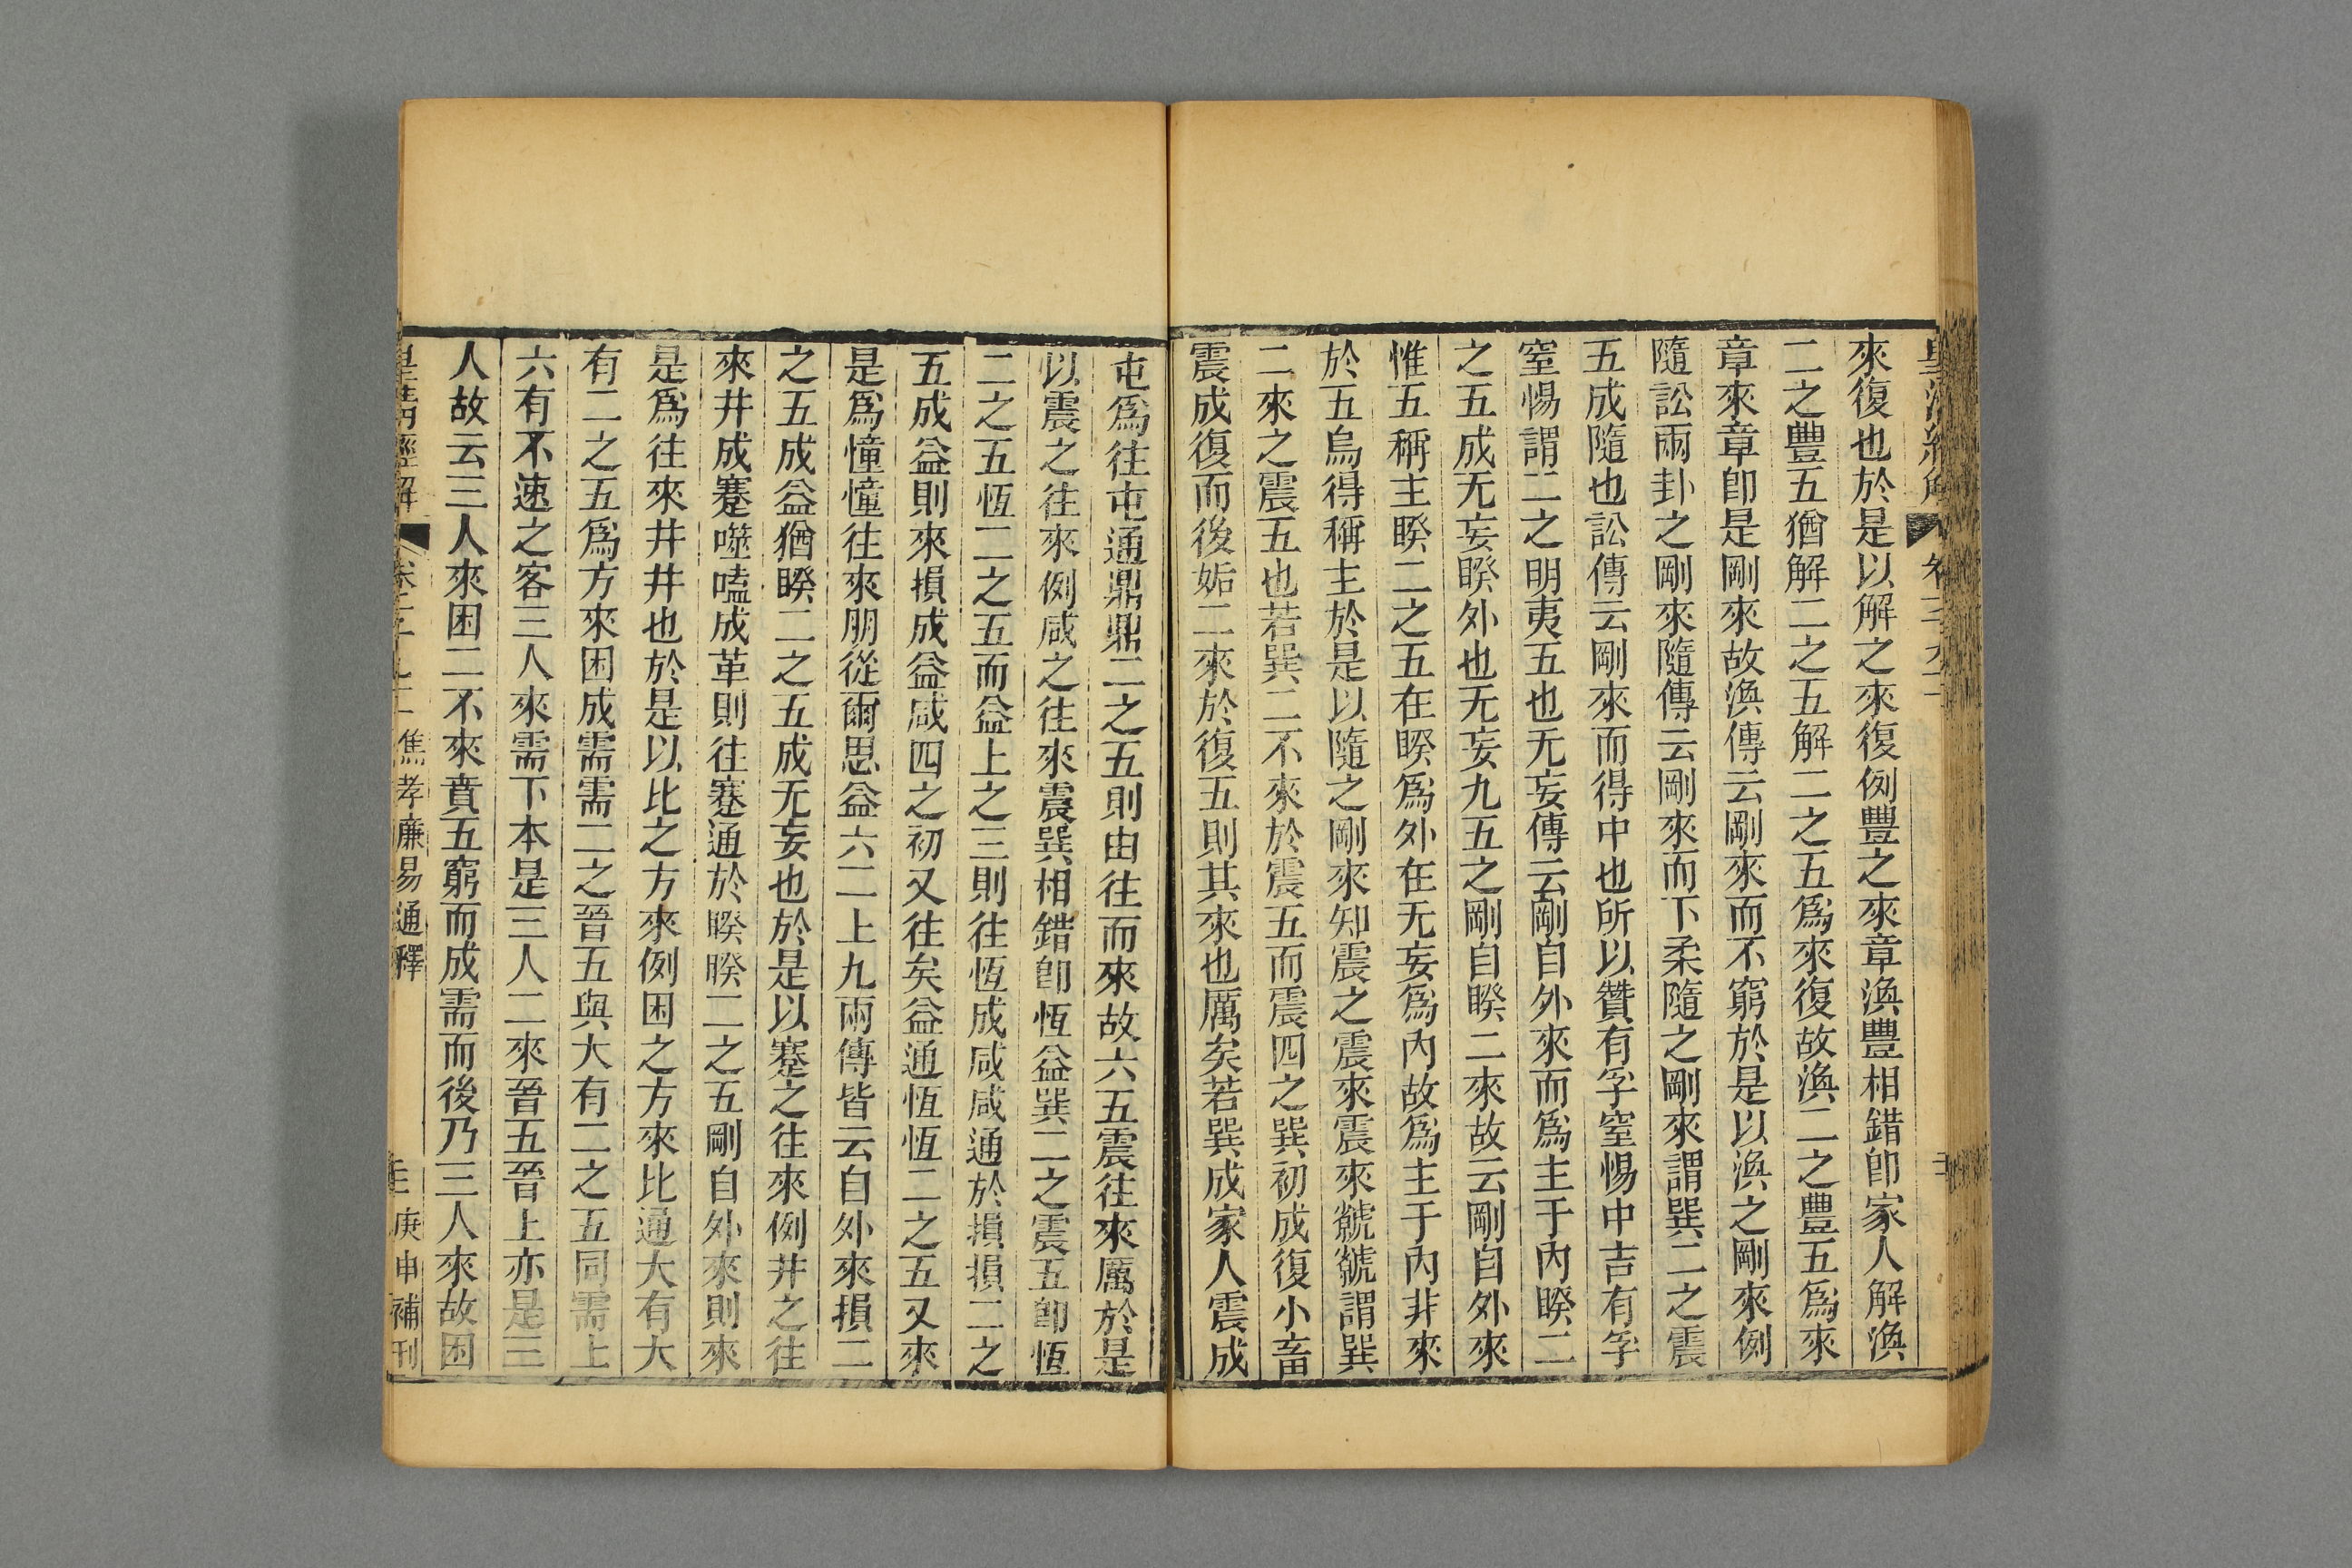 來復也於是以解之來復例豐之來章渙豐相錯卽家人解渙
二之豐五猶解二之五解二之五爲來復故渙二之豐五爲來
章來章卽是剛來故渙傳云剛來而不窮於是以渙之剛來例
隨訟兩卦之剛來隨傳云剛來而下柔隨之剛來謂巽二之震
五成隨也訟傳云剛來而得中也所以贊有孚窒惕中吉有孚
窒惕謂二之明夷五也无妄傳云剛自外來而爲主于內睽二
之五成无妄睽外也无妄九五之剛自睽二來故云剛自外來
惟五稱主睽二之五在睽爲外在无妄爲內故爲主于內非來
於五烏得稱主於是以隨之剛來知震之震來震來虩虩謂巽
二來之震五也若巽二不來於震五而震四之巽初成復小畜
震成復而後姤二來於復五則其來也厲矣若巽成家人震成
屯爲往屯通鼎鼎二之五則由往而來故六五震往來厲於是
以震之往來例咸之往來震巽相錯卽恆益巽二之震五卽恆
二之五恆二之五而益上之三則往恆成咸咸通於損損二之
五成益則來損成益咸四之初又往矣益通恆恆二之五又來
是爲憧憧往來朋從爾思益六二上九兩傳皆云自外來損二
之五成益猶睽二之五成无妄也於是以蹇之往來例井之往
來井成蹇噬嗑成革則往蹇通於睽睽二之五剛自外來則來
是爲往來井井也於是以比之方來例困之方來比通大有大
有二之五爲方來困成需需二之晉五與大有二之五同需上
六有不速之客三人來需下本是三人二來晉五晉上亦是三
人故云三人來困二不來賁五窮而成需而後乃三人來故困
皇淸經解 焦孝廉易通釋 庚申補刊